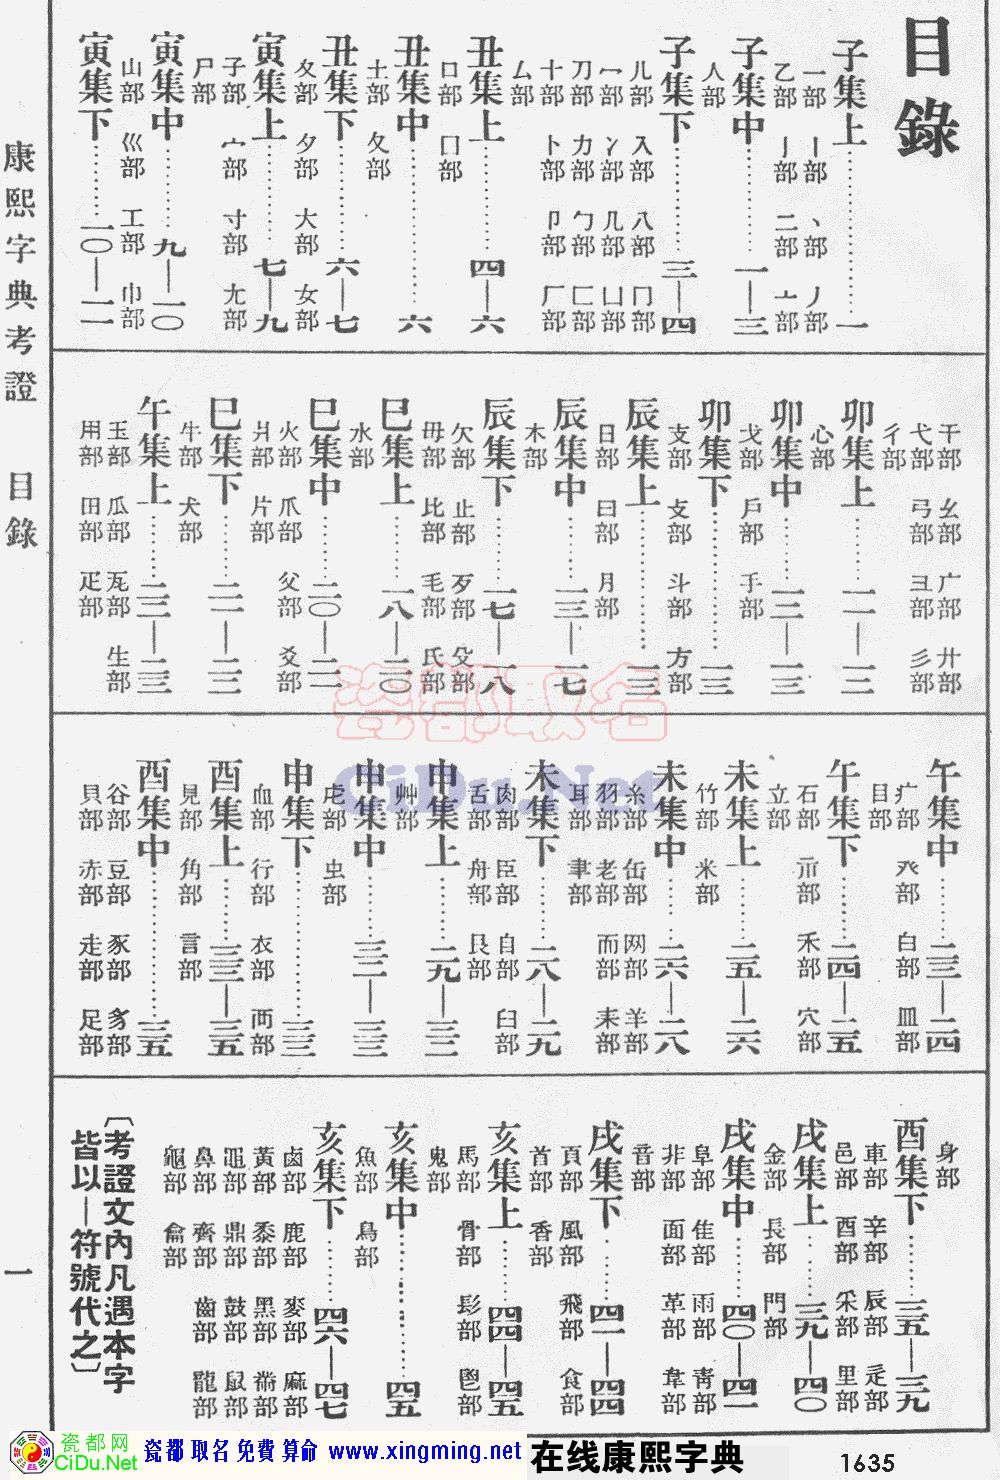 目錄
子集上……一
一部 丨部 丶部 丿部
乙部 亅部 二部 亠部
子集中……一—三
人部
子集下……三—四
儿部 入部 八部 冂部
冖部 冫部 几部 凵部
刀部 力部 勹部 匚部
十部 卜部 卩部 厂部
厶部
丑集上……四—六
口部 囗部
丑集中……六
土部 夂部
丑集下……六—七
夊部 夕部 大部 女部
寅集上……七—九
子部 宀部 寸部 尢部
尸部
寅集中……九—一〇
山部 巛部 工部 巾部
寅集下……一〇—一一
干部 幺部 广部 廾部
弋部 弓部 彐部 彡部
彳部
卯集上……一一—一二
心部
卯集中……一二—一三
戈部 戶部 手部
卯集下……一三
支部 攴部 斗部 方部
辰集上……一三
日部 曰部 月部
辰集中……一三—一七
木部
辰集下……一七—一八
欠部 止部 歹部 殳部
毋部 比部 毛部 氏部
巳集上……一八—二〇
水部
巳集中……二〇—二一
火部 爪部 父部 爻部
爿部 片部
巳集下……二一—二二
牛部 犬部
午集上……二二—二三
玉部 瓜部 瓦部 生部
用部 田部 疋部
午集中……二三—二四
疒部 癶部 白部 皿部
目部
午集下……二四—二五
石部 示部 禾部 穴部
立部
未集上……二五—二六
竹部 米部
未集中……二六—二八
糸部 缶部 网部 羊部
羽部 老部 而部 耒部
耳部 聿部
未集下……二八—二九
肉部 臣部 自部 臼部
舌部 舟部 艮部
申集上……二九—三一
艸部
申集中……三一—三三
虍部 虫部
申集下……三三
血部 行部 衣部 襾部
酉集上……三三—三五
見部 角部 言部
酉集中……三五
谷部 豆部 豕部 豸部
貝部 赤部 走部 足部
身部
酉集下……三五—三九
車部 辛部 辰部 辵部
邑部 酉部 釆部 里部
戌集上……三九—四〇
金部 長部 門部
戌集中……四〇—四一
阜部 隹部 雨部 靑部
非部 面部 革部 韋部
音部
戌集下……四一—四四
頁部 風部 飛部 食部
首部 香部
亥集上……四四—四五
馬部 骨部 髟部 鬯部
鬼部
亥集中……四五
魚部 鳥部
亥集下……四六—四七
鹵部 鹿部 麥部 麻部
黃部 黍部 黑部 黹部
黽部 鼎部 鼓部 鼠部
鼻部 齊部 齒部 龍部
龜部 龠部
〔考證文內凡遇本字
皆以—符號代之〕
康熙字典考證 目錄
一
瓷都取名
CiDu.Net
瓷都网
CiDu.Net
瓷都取名免費算命 www.xingming.net
在线康熙字典
1635